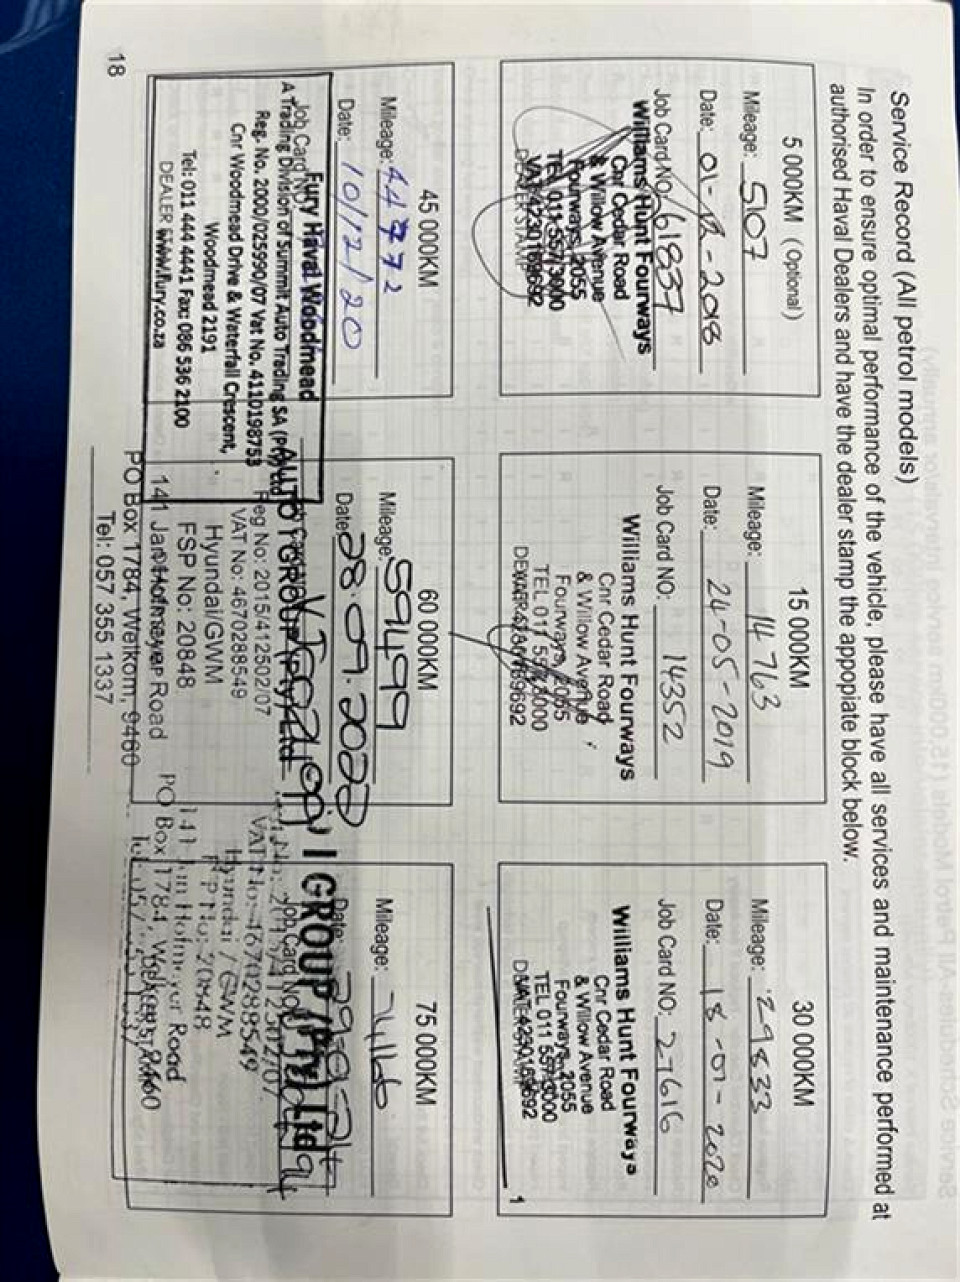 Service Record (All petrol models)
In order to ensure optimal performance of the vehicle, please have all services and maintenance performed at
authorised Haval Dealers and have the dealer stamp the appopiate block below.
5 000KM (Optional)
Mileage: 5107
Date: 01-12-2018
Job Card NO. 61837
Williams Hunt Fourways
Cnr Cedar Road
& Willow Avenue
Fourways, 2055
TEL 011 557 3000
VAT 4230169692
DEALER STAMP
15 000KM
Mileage: 14763
Date: 24-05-2019
Job Card NO: 14352
Williams Hunt Fourways
Cnr Cedar Road
& Willow Avenue
Fourways, 2055
TEL 011 557 3000
30 000KM
Mileage: 29533
Date: 15-01-2020
Job Card NO. 27616
Williams Hunt Fourways
Cnr Cedar Road
& Willow Avenue
Fourways, 2055
TEL 011 557 3000
VAT 4230169692
1
45 000KM
Mileage: 44772
Date: 10/12/20
Job Card NO
Fury Haval Woodmead
A Trading Division of Summit Auto Trading SA (Pty) Ltd
Reg. No. 2000/025990/07 Vat No. 4110198753
Cnr Woodmead Drive & Waterfall Crescent,
Woodmead 2191
Tel: 011 444 4441 Fax: 086 536 2100
DEALER
www.fury.co.za
60 000KM
Mileage: 59499
Date: 28.09.2022
AUTO 1 GROUP (Pty) Ltd
Reg No: 2015/412502/07
VAT No: 4670288549
Hyundai/GWM
FSP No: 20848
141 Jan Hofmeyer Road
PO Box 1784, Welkom, 9460
Tel: 057 355 1337
75 000KM
Mileage:
Date:
Job Card NO
1 GROUP (Pty) Ltd
VAT No: 4670288549
Hyundai / GWM
FSP No: 20848
141 Jan Hofmeyer Road
PO Box 1784, Welkom, 9460
18